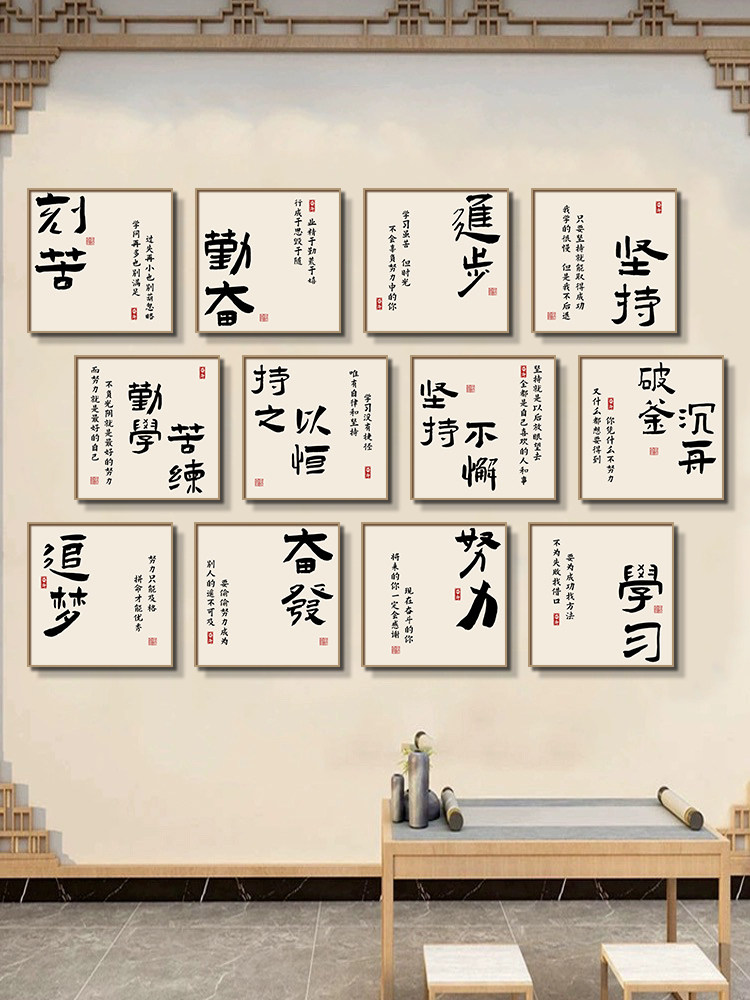 刻苦
过失再小也别忽略
学问再多也别满足
勤奋
业精于勤荒于嬉
行成于思毁于随
進步
学习虽苦 但时光
不会辜負努力中的你
坚持
只要坚持就能取得成功
我学的很慢 但是我不后退
勤學
苦練
不負光阴就是最好的努力
而努力就是最好的自己
持之
以恒
学习没有捷径
唯有自律和坚持
坚持
不懈
坚持就是以后放眼望去
全都是自己喜欢的人和事
破釜
沉舟
你凭什么不努力
又什么都想要得到
追梦
努力只能及格
拼命才能优秀
奋發
要偷偷努力成为
别人的遥不可及
努力
现在奋斗的你
将来的你一定会感谢
學习
要为成功找方法
不为失败找借口